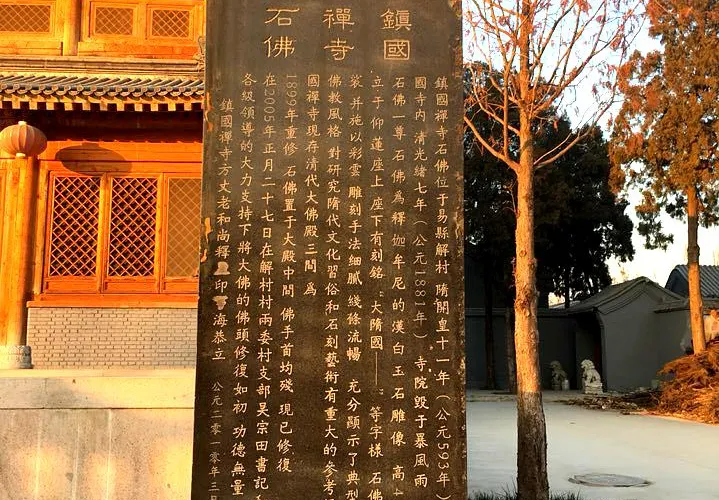 鎮國
禪寺
石佛
鎮國禪寺石佛位于易縣解村 隋開皇十一年（公元593年）
國寺內 清光緒七年（公元1881年） 寺院毀于暴風雨
石佛一尊 石佛為釋迦牟尼的漢白玉石雕像 高4
立于仰蓮座上 座下有刻銘“大隋國——”等字樣 石佛
裳 并施以彩雲 雕刻手法細膩 綫條流暢 充分顯示了典型
佛教風格 對研究隋代文化習俗和石刻藝術有重大的參考
國禪寺現存清代大佛殿三間 為
1899年重修 石佛置于大殿中間 佛手首均殘 現已修復
在2005年正月二十七日在解村村兩委村支部吴宗田書記
各級領導的大力支持下將大佛的佛頭修復如初 功德無量
鎮國禪寺方丈老和尚釋 印 海恭立 公元二零一零年三